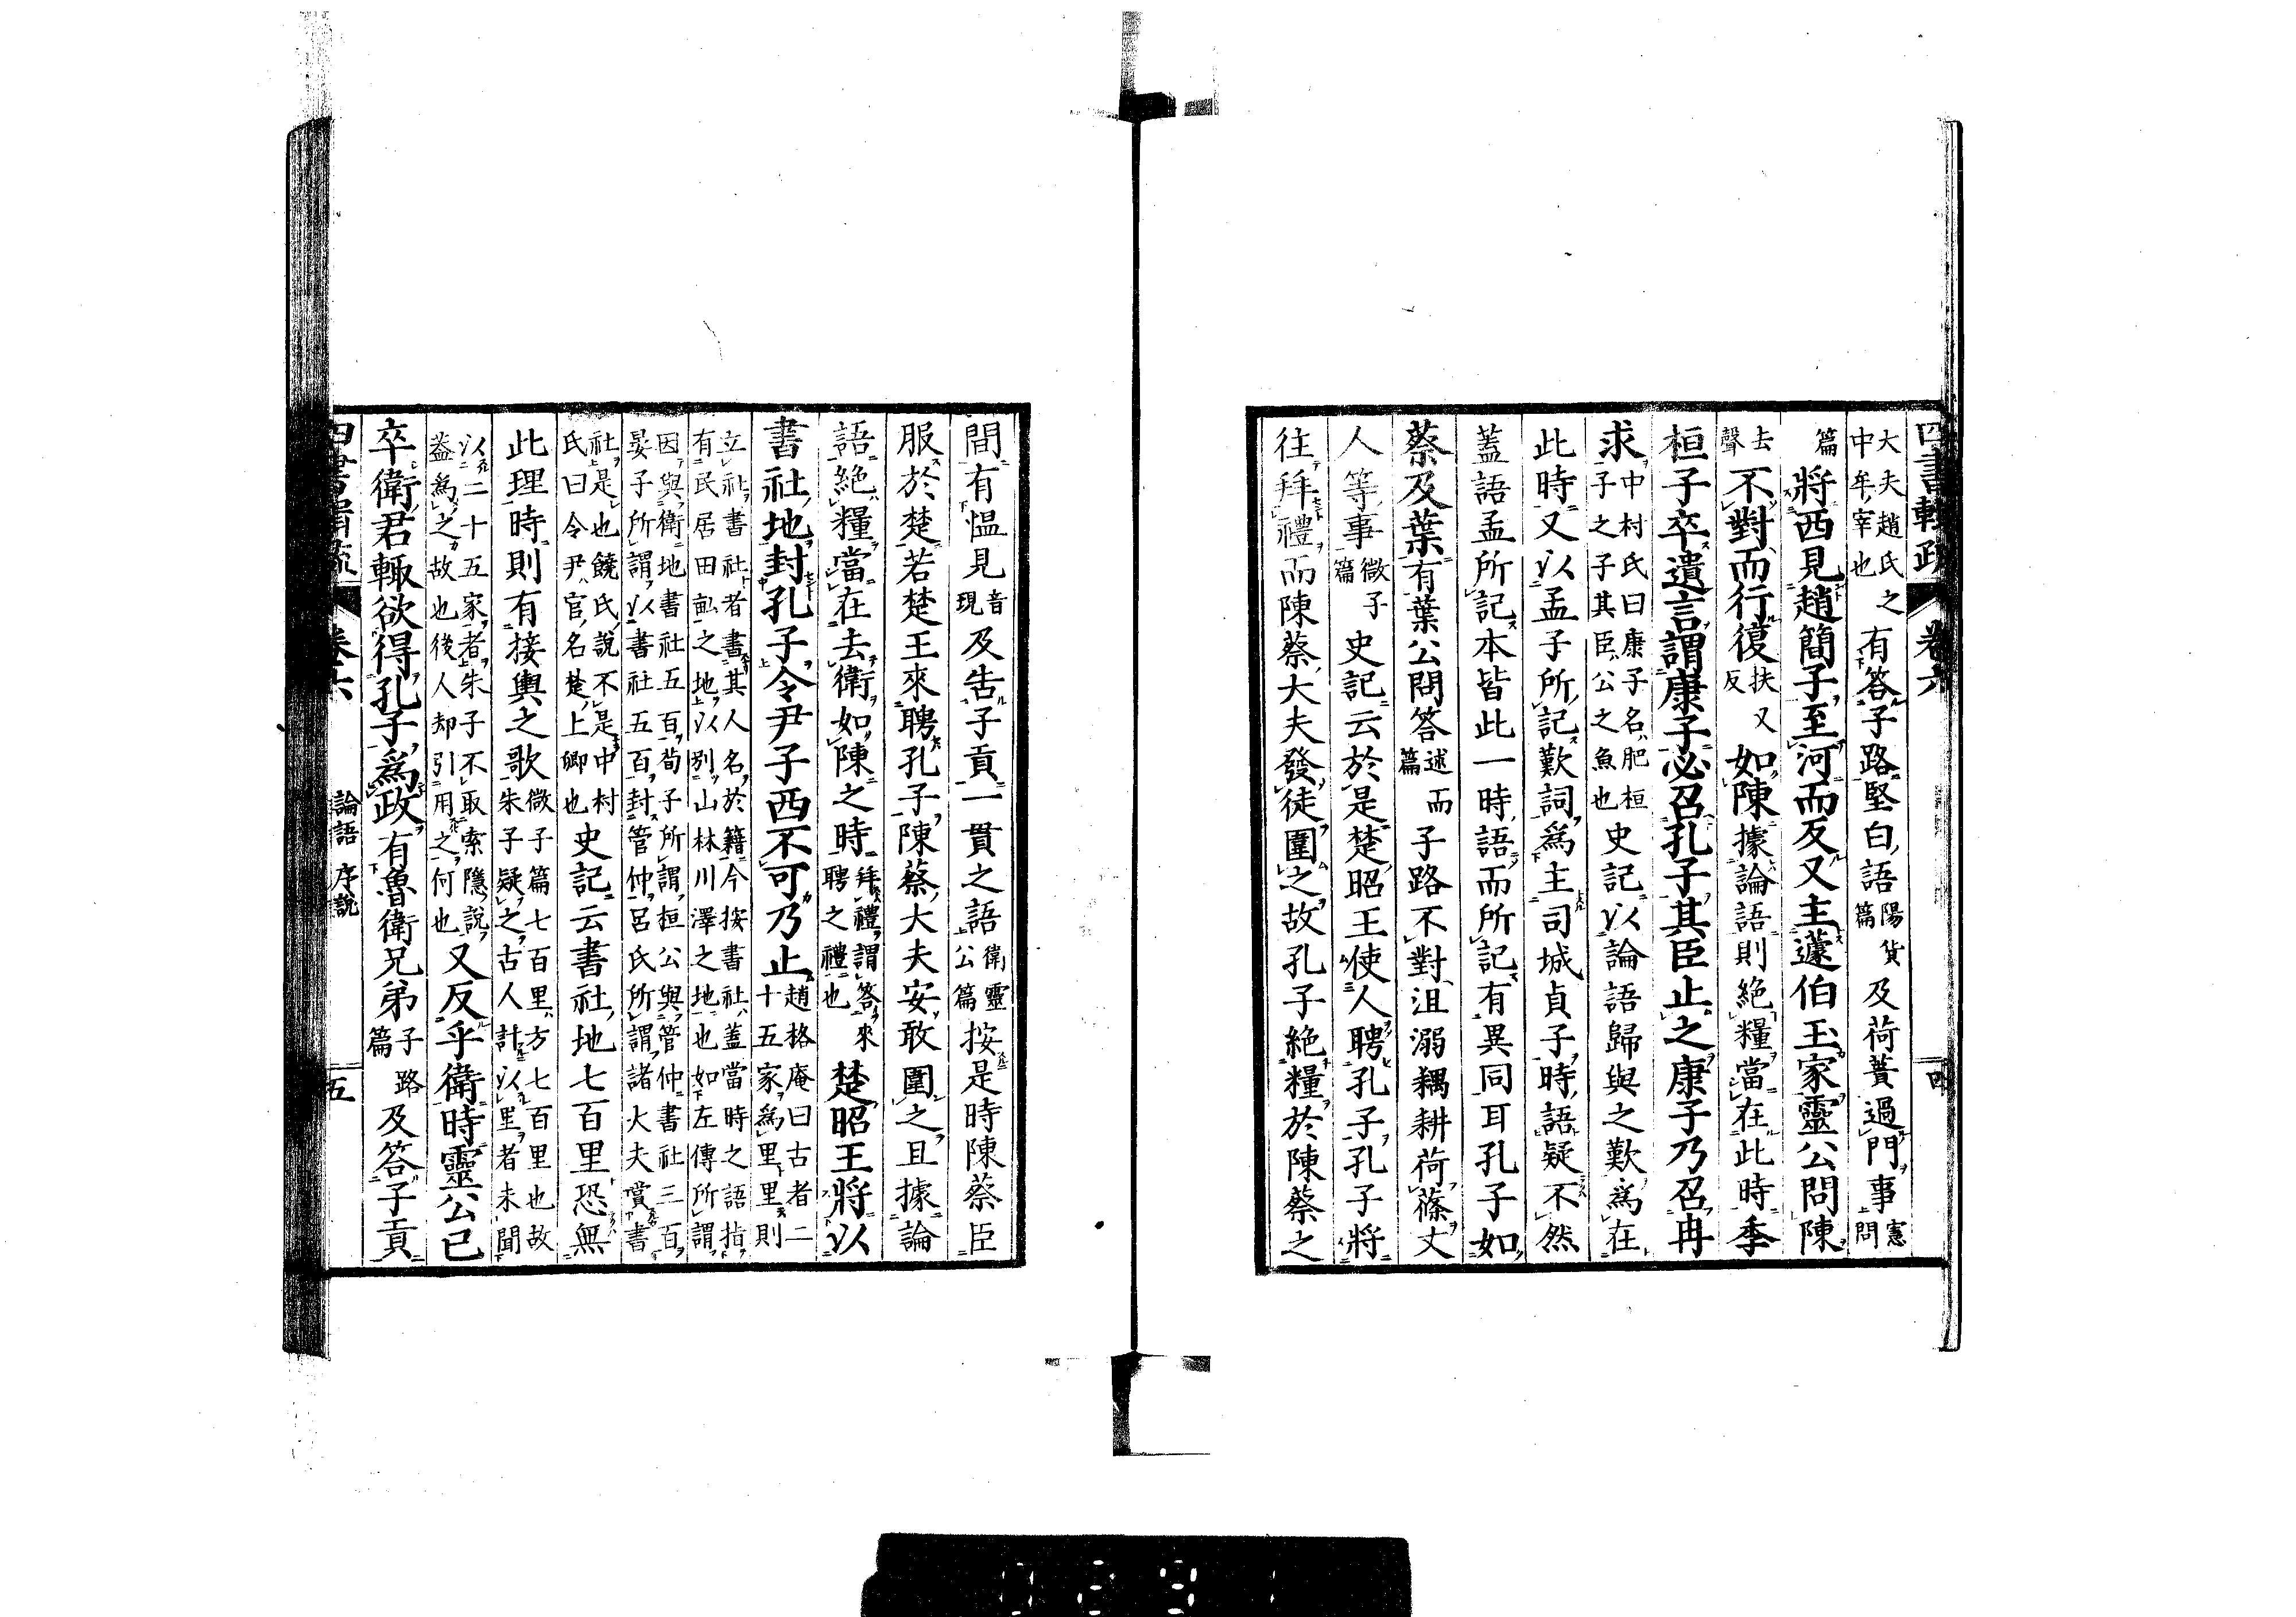 四書輯疏　卷六　四
大夫趙氏之中牟宰也有答子路堅白語陽貨篇及荷蕢過門事憲問
篇將西見趙簡子至河而反又主蘧伯玉家靈公問陳
去聲不對而行復扶又反如陳據論語則絶糧當在此時季
桓子卒遺言謂康子必召孔子其臣止之康子乃召冉
求中村氏曰康子名肥桓子之子其臣公之魚也史記以論語歸與之歎為在
此時又以孟子所記歎詞為主司城貞子時語疑不然
蓋語孟所記本皆此一時語而所記有異同耳孔子如
蔡及葉有葉公問答述而篇子路不對沮溺耦耕荷蓧丈
人等事微子篇史記云於是楚昭王使人聘孔子孔子將
往拜禮而陳蔡大夫發徒圍之故孔子絶糧於陳蔡之
間有慍見音現及告子貢一貫之語衛靈公篇按是時陳蔡臣
服於楚若楚王來聘孔子陳蔡大夫安敢圍之且據論
語絶糧當在去衛如陳之時拜禮謂答來聘之禮也楚昭王將以
書社地封孔子令尹子西不可乃止趙格庵曰古者二十五家為里里則
立社書社者書其人名於籍今按書社蓋當時之語指
有民居田畝之地以別山林川澤之地也如左傳所謂
因與衛地書社五百荀子所謂桓公與管仲書社三百
晏子所謂以書社五百封管仲呂氏所謂諸大夫賞書
社是也饒氏説不是中村氏曰令尹官名楚上卿也史記云書社地七百里恐無
此理時則有接輿之歌微子篇七百里方七百里也故朱子疑之古人計以里者未聞
以二十五家者朱子不取索隱説蓋為之故也後人却引用之何也又反乎衛時靈公已
卒衛君輒欲得孔子為政有魯衛兄弟子路篇及答子貢
四書輯疏　卷六　論語　序說　五